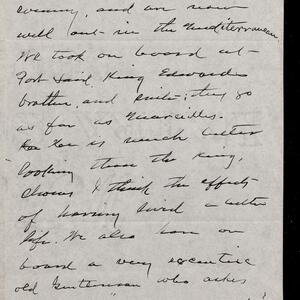 evening, and are now
well out in the Mediterranean.
We took on board at
Port Said, King Edwards
brother, and suite; they go
as far as Marseilles.
He is much better
looking than the King,
shows I think the effects
of having lived a better
life. We also have on
board a very excentric
old gentleman who asks